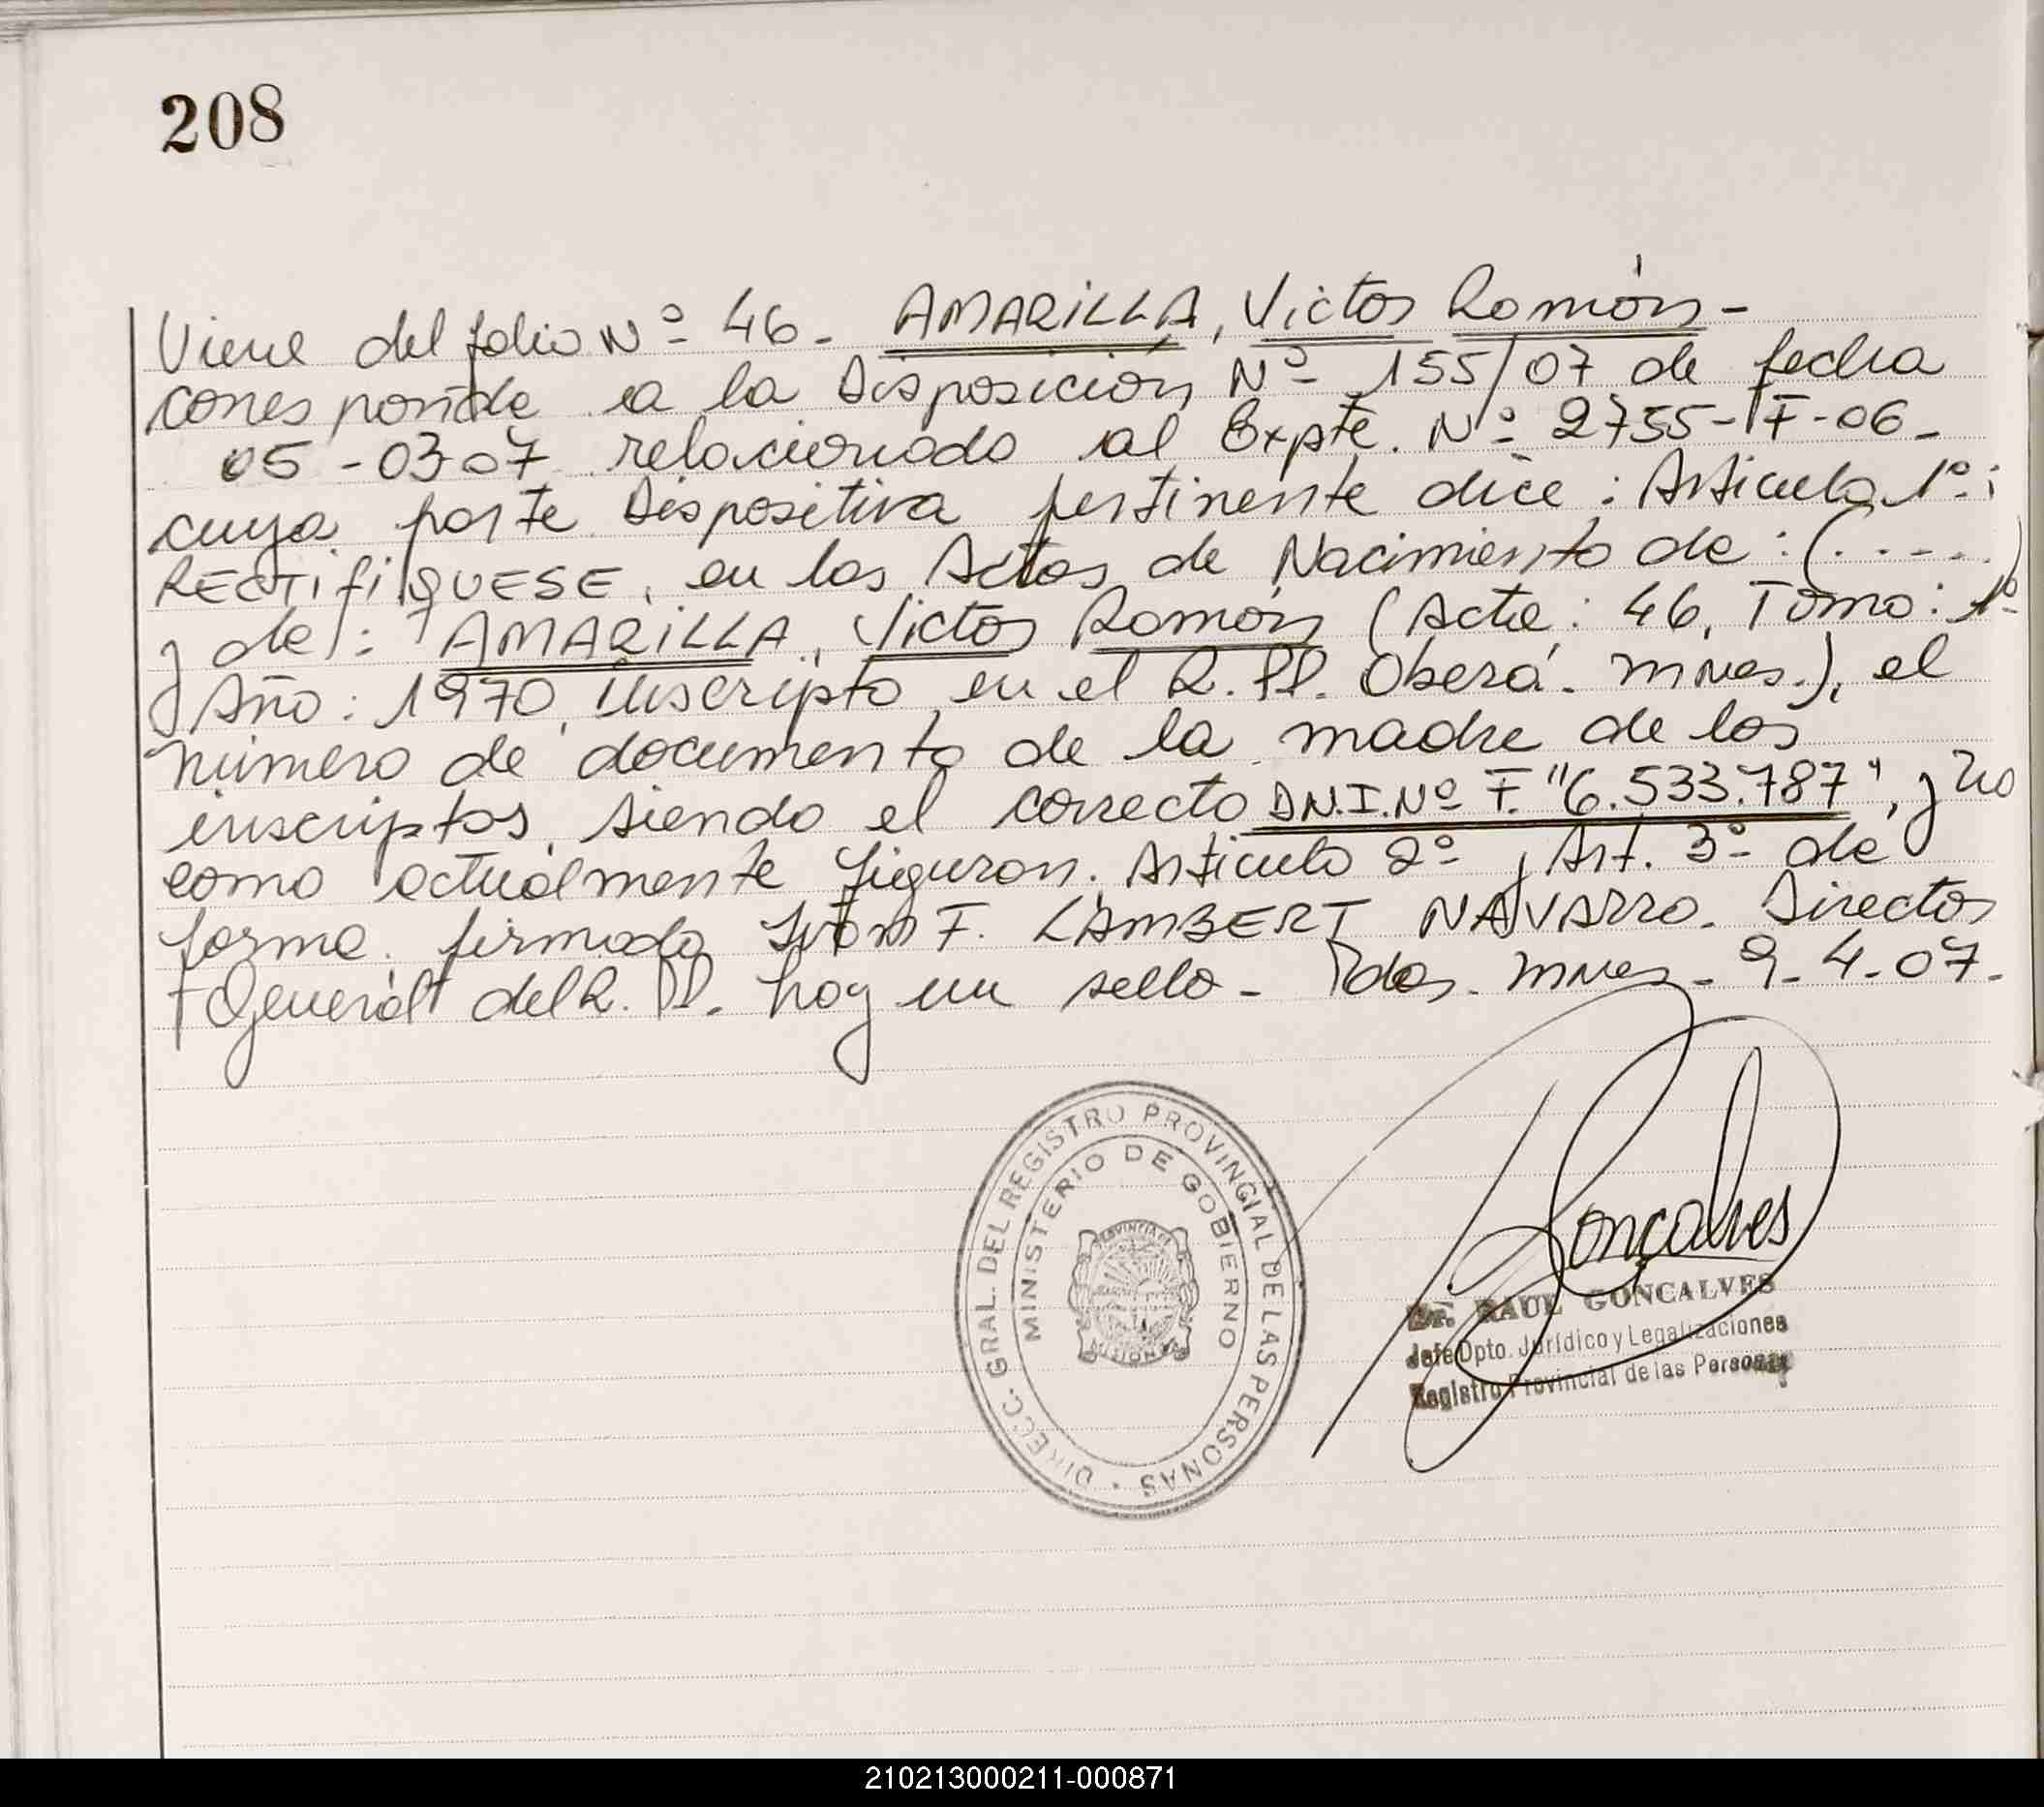 208
Viene del folio Nº 46. AMARILLA, Victor Ramón -
corresponde a la Disposición Nº 155/07 de fecha
05-03-07 relacionado al Expte. Nº 2755-F-06-
cuya parte Dispositiva pertinente dice: Artículo 1º:
RECTIFIQUESE, en las Actas de Nacimiento de: (....)
y de: AMARILLA, Victor Ramón (Acta: 46, Tomo: 1º
Año: 1970, inscripto en el R.PP. Oberá. Mnes.), el
número de documento de la madre de los
inscriptos, siendo el correcto D.N.I. Nº F. "6.533.787", y no
como actualmente figuran. Artículo 2º y Art. 3º de
forma. firmado F. LAMBERT NAVARRO. Director
General del R.PP. hay un sello - Pdas. Mnes - 9-4-07.
DIRECC. GRAL. DEL REGISTRO PROVINCIAL DE LAS PERSONAS
MINISTERIO DE GOBIERNO
PROVINCIA DE
MISIONES
Gonçalves
Dr. RAUL GONÇALVES
Jefe Dpto. Jurídico y Legalizaciones
Registro Provincial de las Personas
210213000211-000871